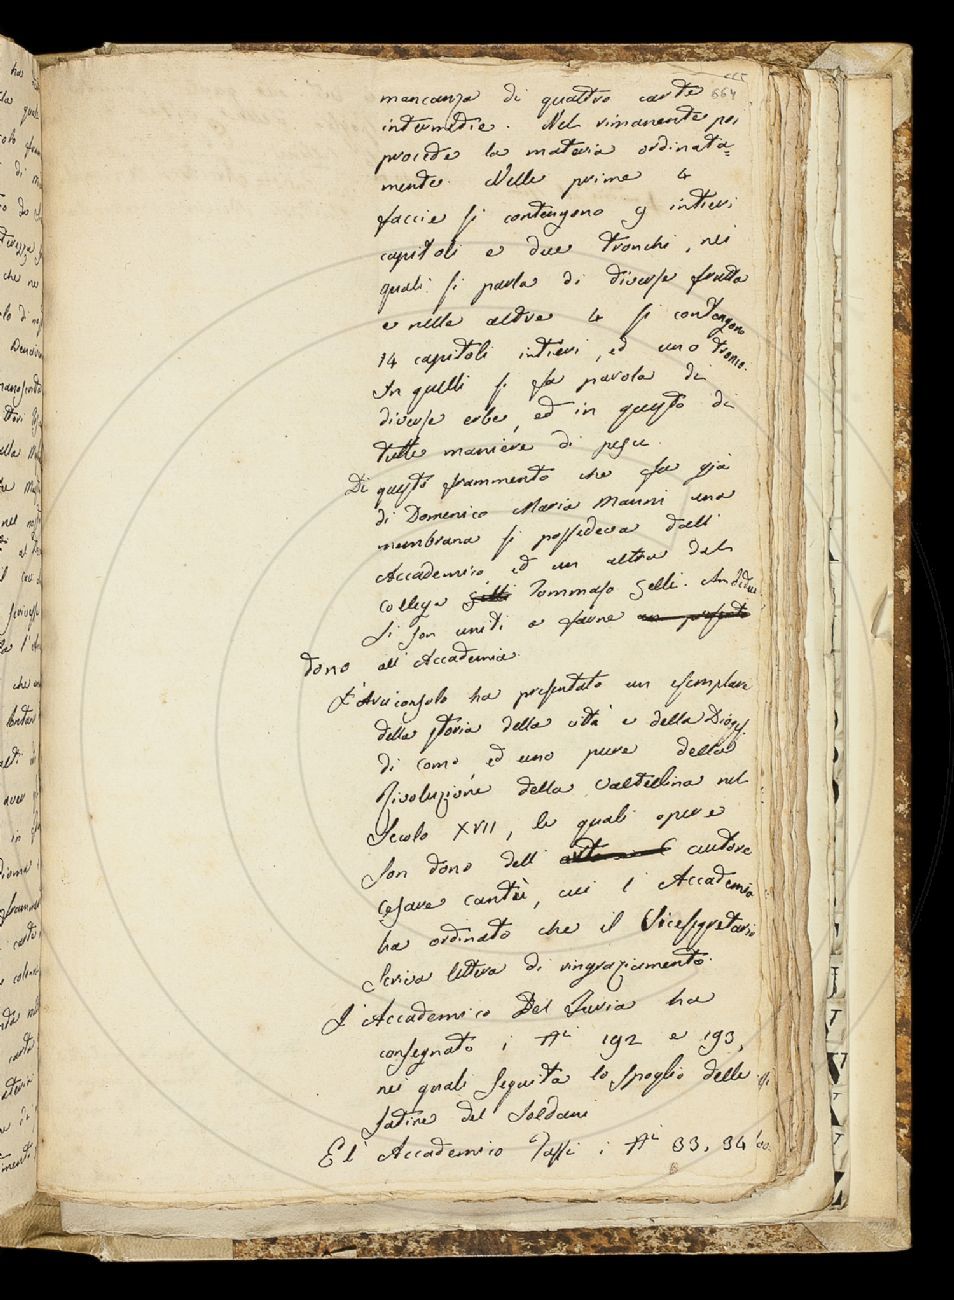 664
mancanza di quattro carte
intermedie. Nel rimanente poi
procede la materia ordinata=
mente. Nelle prime 4
faccie si contengono 9 intieri
capitoli e due tronchi, nei
quali si parla di diverse frutta
e nelle altre 4 si contengono
14 capitoli intieri, ed uno tronco.
In quelli si fa parola di
diverse erbe, ed in questo di
tutte maniere di pesci.
Di questo frammento che fu già
di Domenico Maria Manni una
membrana si possedeva dall'
Accademico ed un altra dal
collega Tommaso Gelli. Ambedue
si son uniti a farne
dono all'Accademia.
L'Arciconsolo ha presentato un esemplare
della storia della città e della Dioces.
di Como, ed uno pure della
Rivoluzione della Valtellina nel
Secolo XVII, le quali opere
son dono dell' autore
Cesare Cantù, cui l'Accademia
ha ordinato che il Vicesegretario
scriva lettera di ringraziamento.
L'Accademico Del Furia ha
consegnato i Ni 192 e 193,
nei quali seguita lo spoglio delle
Satire del Soldani
E l'Accademico Tassi i Ni 33, 34